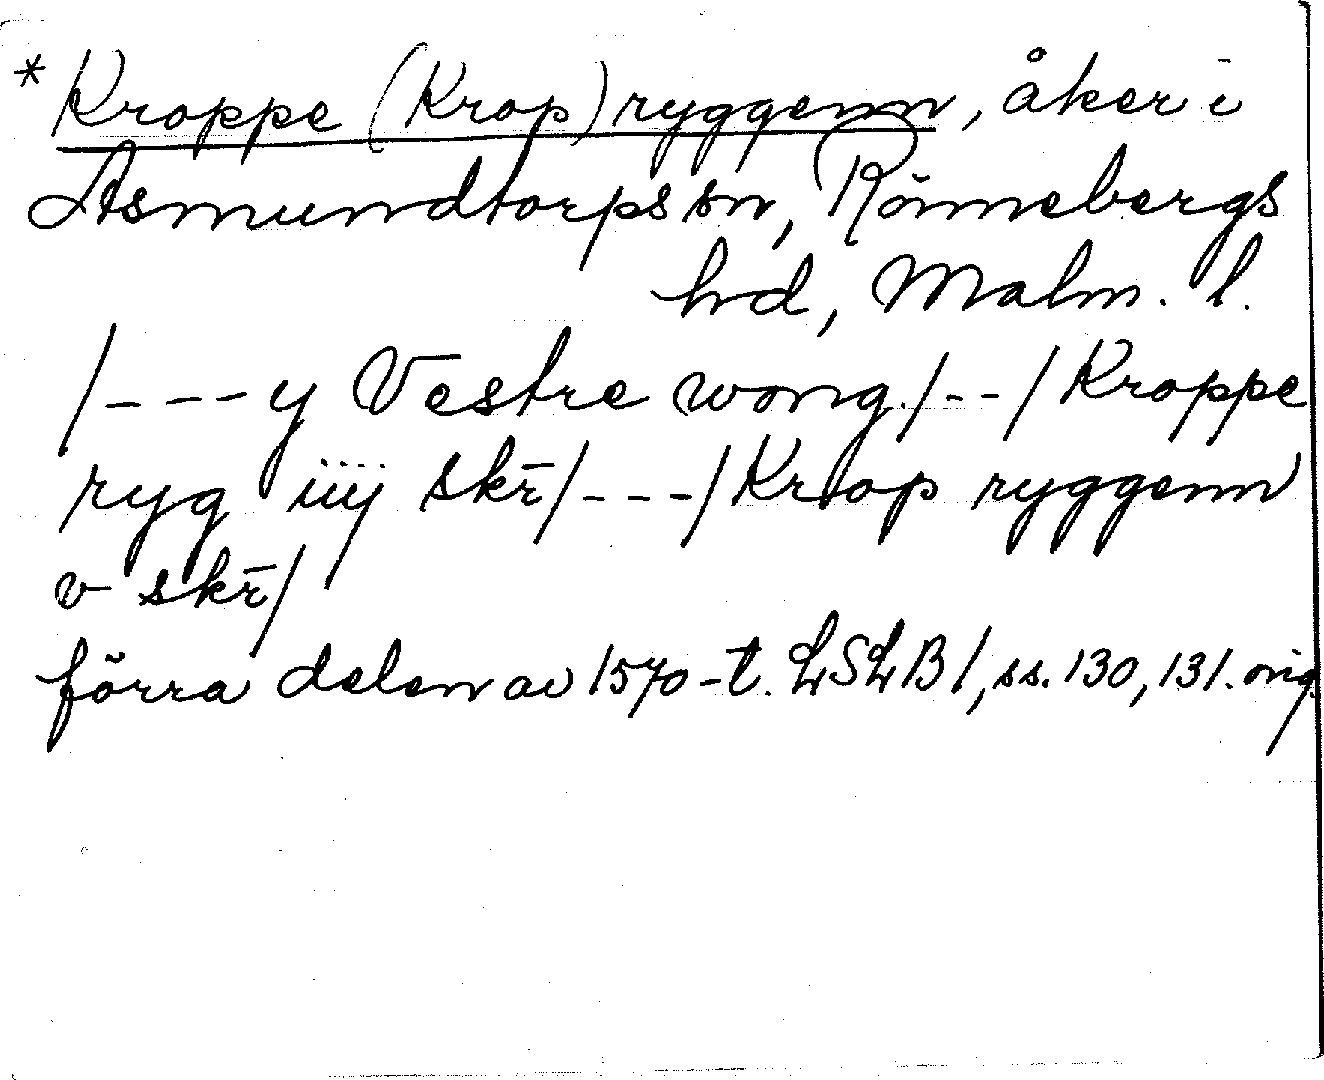 * Kroppe (Krop) ryggenn, åker i
Asmundtorps sn, Rönnebergs
hd, Malm. l.
/---y Vestre wong /--/ Kroppe
ryg iiij skr̄/---/Krop ryggenn
v skr̄/
förra delen av 1570-t. LSLB 1, ss. 130, 131. orig.